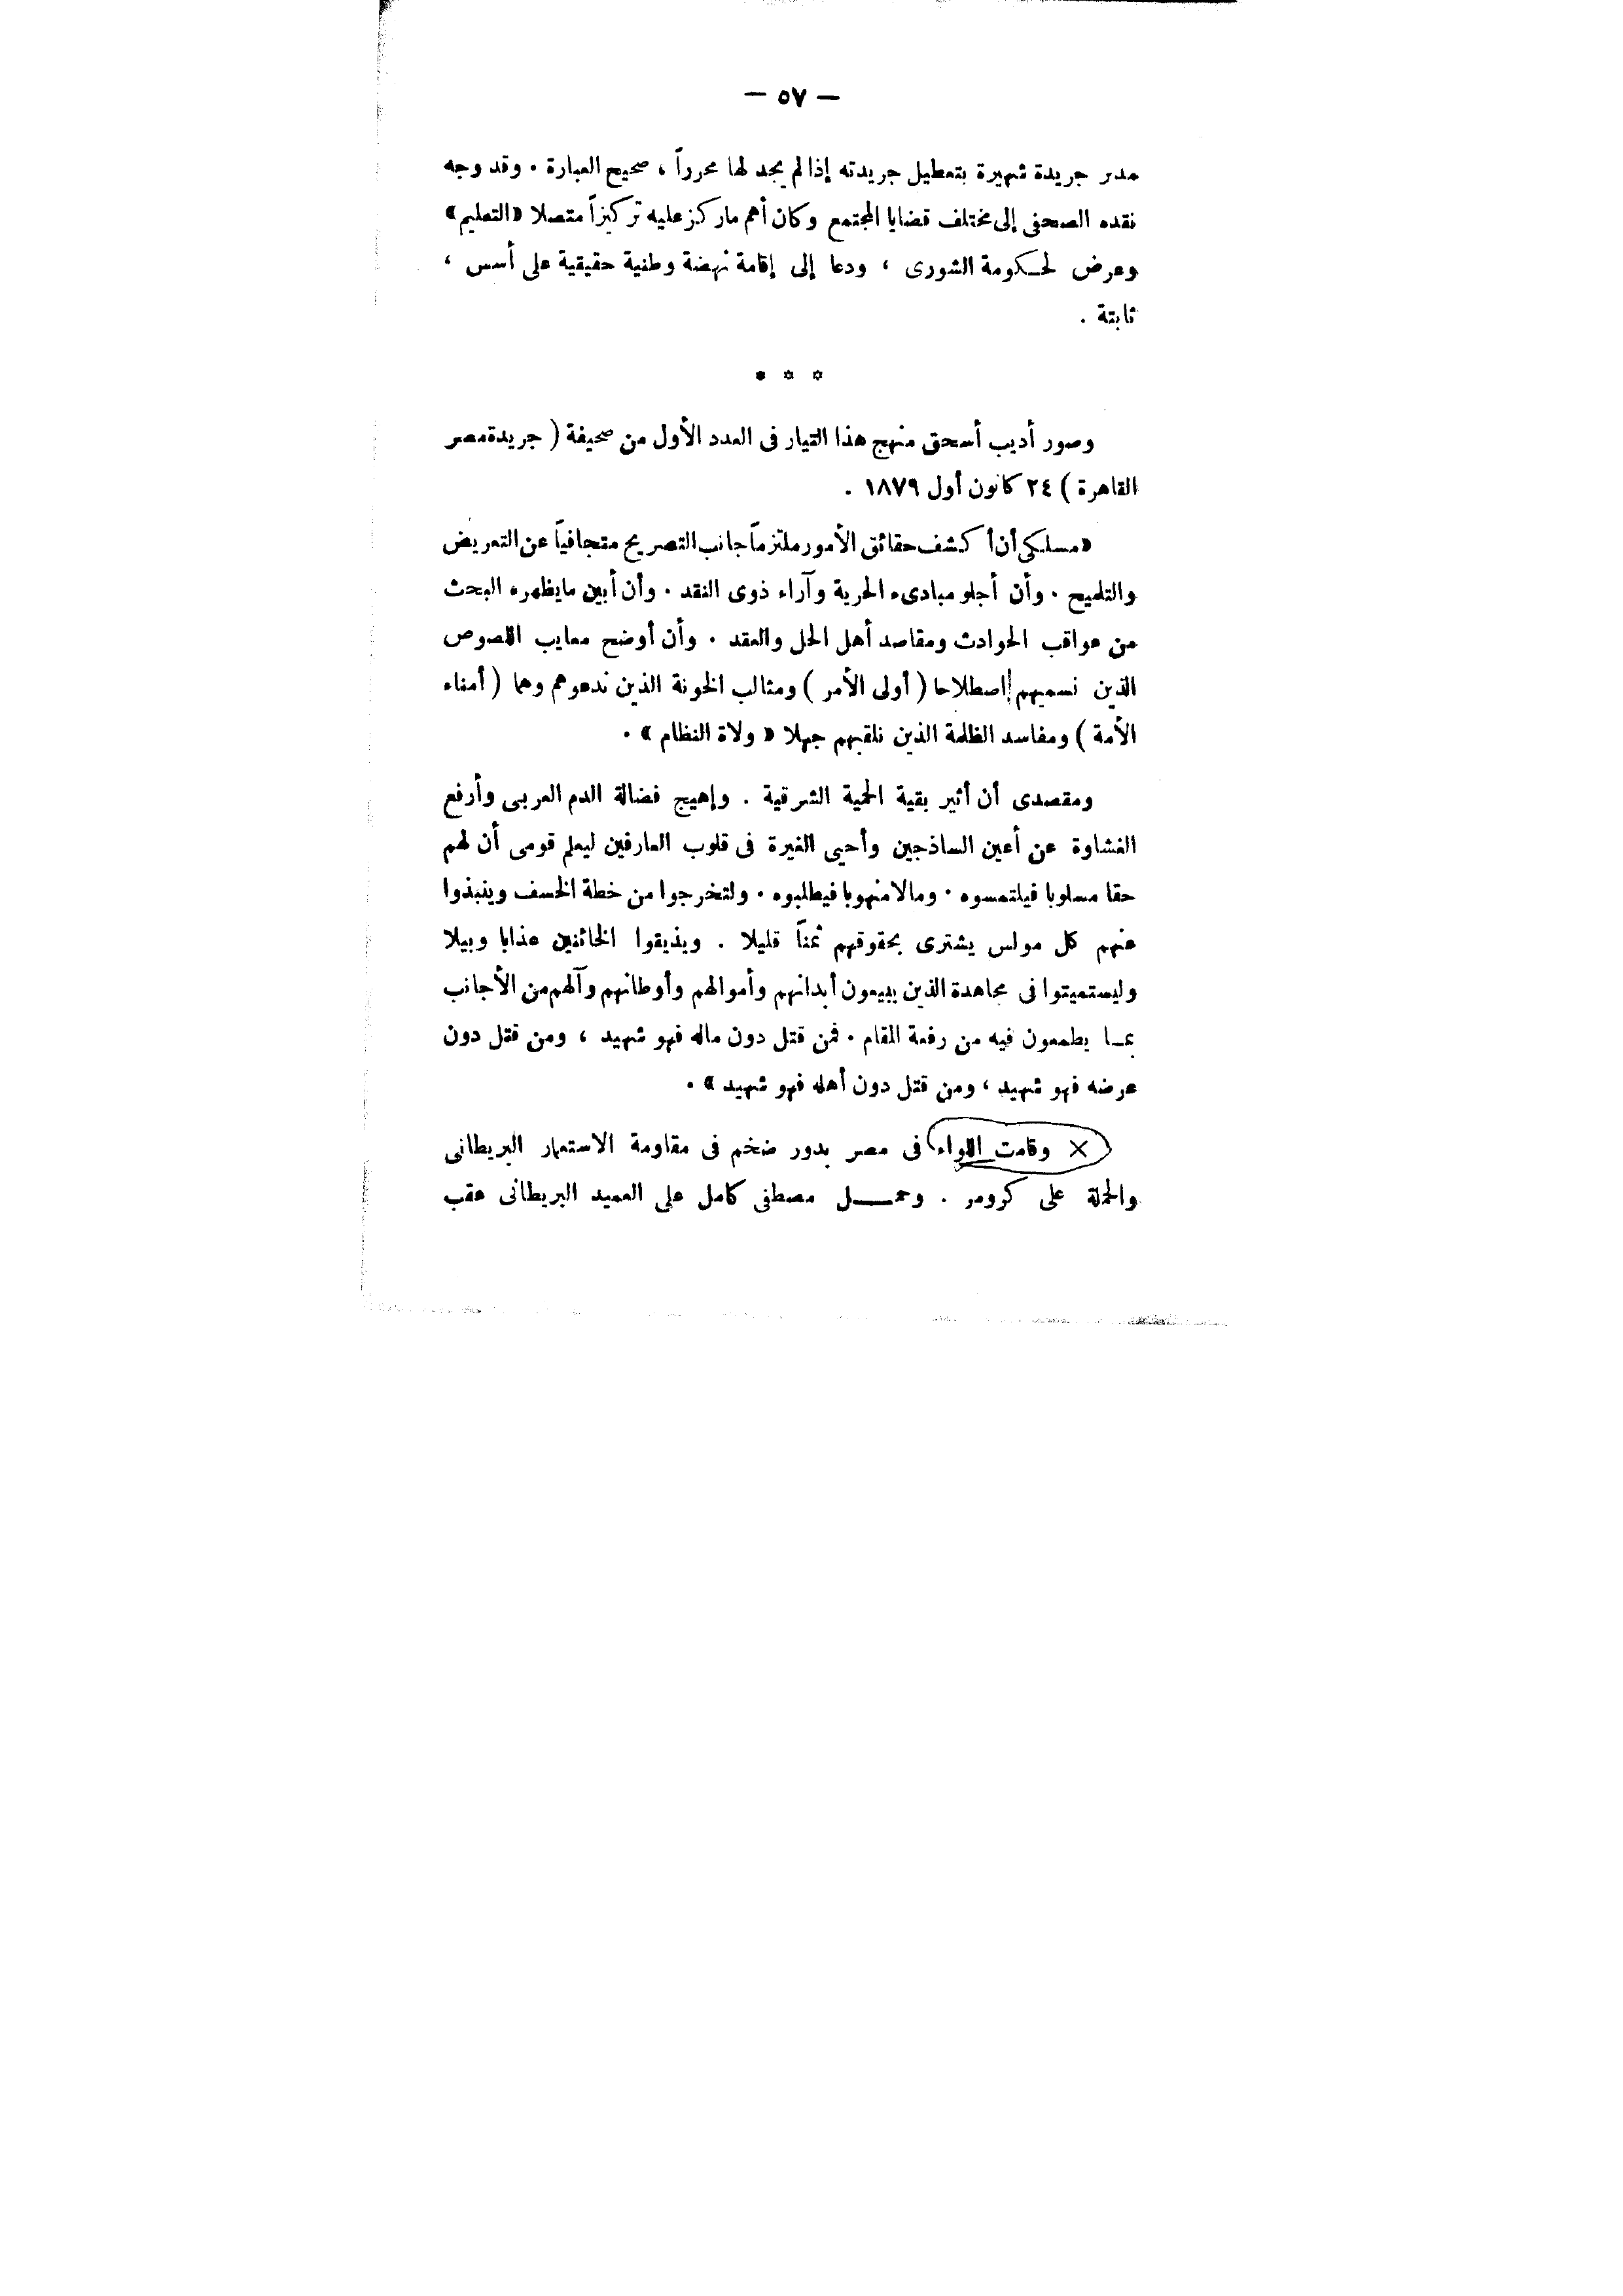 — ٥٧ —
مدير جريدة شهيرة بتعطيل جريدته إذا لم يجد لها محرراً ، صحيح العبارة . وقد وجه
نقده الصحفى إلى مختلف قضايا المجتمع وكان أهم ماركز عليه تركيزاً متصلا «التعليم»
وعرض لحكومة الشورى ، ودعا إلى إقامة نهضة وطنية حقيقية على أسس ،
ثابتة .
* * *
وصور أديب أسحق منهج هذا التيار فى العدد الأول من صحيفة ( جريدة مصر
القاهرة ) ٢٤ كانون أول ١٨٧٩ .
«مسلكى أن أكشف حقائق الأمور ملتزماً جانب التصريح متجافياً عن التعريض
والتلميح . وأن أجلو مبادىء الحرية وآراء ذوى النقد . وأن أبين مايظهره البحث
من عواقب الحوادث ومقاصد أهل الحل والعقد . وأن أوضح معايب اللصوص
الذين نسميهم اصطلاحا ( أولى الأمر ) ومثالب الخونة الذين ندعوهم وهما ( أمناء
الأمة ) ومفاسد الظلمة الذين نلقبهم جهلا « ولاة النظام » .
ومقصدى أن أثير بقية الحمية الشرقية . وإهيج فضالة الدم العربى وأرفع
الغشاوة عن أعين الساذجين وأحيى الغيرة فى قلوب العارفين ليعلم قومى أن لهم
حقا مسلوبا فيلتمسوه . ومالا منهوبا فيطلبوه . ولتخرجوا من خطة الخسف وينبذوا
عنهم كل مولس يشترى بحقوقهم ثمناً قليلا . ويذيقوا الخائنين عذابا وبيلا
وليستميتوا فى مجاهدة الذين يبيعون أبدانهم وأموالهم وأوطانهم وآلهم من الأجانب
بمـا يطمعون فيه من رفعة المقام . فمن قتل دون ماله فهو شهيد ، ومن قتل دون
عرضه فهو شهيد ، ومن قتل دون أهله فهو شهيد » .
× وقامت اللواء فى مصر بدور ضخم فى مقاومة الاستعمار البريطانى
والحملة على كرومر . وحمـــل مصطفى كامل على العميد البريطانى عقب